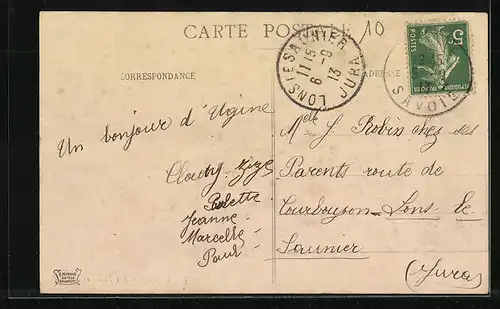 CARTE POSTALE
10
CORRESPONDANCE
ADRESSE
LONS-LE-SAUNIER
11 15
6 - 9
13
JURA
SAVOIE
5c
POSTES
Un bonjour d'Ugine
Paulette
Jeanne -
Marcelle -
Paul -
Melle J. Robin chez ses
Parents route de
Courbouzon - Lons - Le
Saunier
(Jura)